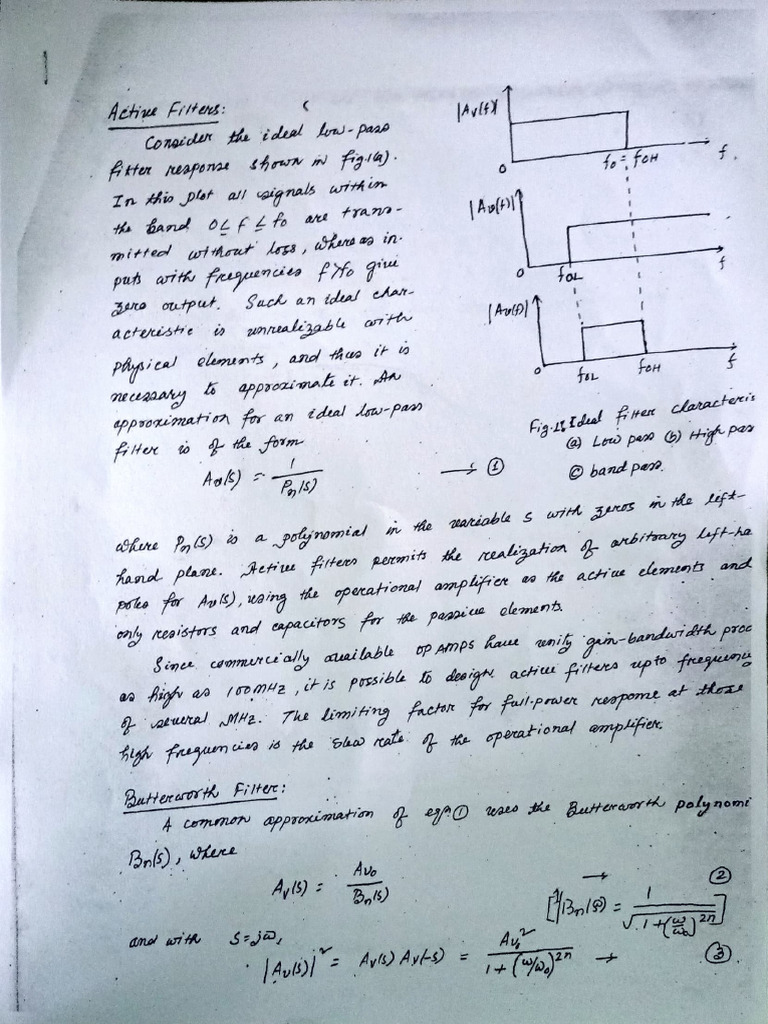 Active Filters:
Consider the ideal low-pass
fitter response shown in fig.1(a).
In this plot all signals within
the band 0≤f≤fo are trans-
mitted without loss, whereas in-
puts with frequencies f>fo give
zero output. Such an ideal char-
acteristic is unrealizable with
physical elements, and thus it is
necessary to approximate it. An
approximation for an ideal low-pass
filter is of the form
Av(s) = 1/Pn(s) → ①
|Av(f)|
0
fo = fOH
f.
|Av(f)|
0
fOL
f
|Av(f)|
0
fOL
fOH
f
Ideal filter characteris
(a) Low pass (b) High pas
(c) band pass.
where Pn(s) is a polynomial in the variable s with zeros in the left-
hand plane. Active filters permits the realization of arbitrary left-ha
poles for Av(s), using the operational amplifier as the active elements and
only resistors and capacitors for the passive elements.
Since commercially available OP AMPS have unity gain-bandwidth proc
as high as 100MHz, it is possible to design active filters upto frequenc
of several MHz. The limiting factor for full-power response at those
high frequencies is the slew rate of the operational amplifier.
Butterworth Filter:
A common approximation of eqn① uses the Butterworth polynomi
Bn(s), where
Av(s) = Avo/Bn(s) → ②
[Bn(s) = 1/√1+(ω/ωo)^2n]
and with s=jω,
|Av(s)|² = Av(s) Av(-s) = Avo²/1+(ω/ωo)^2n → ③